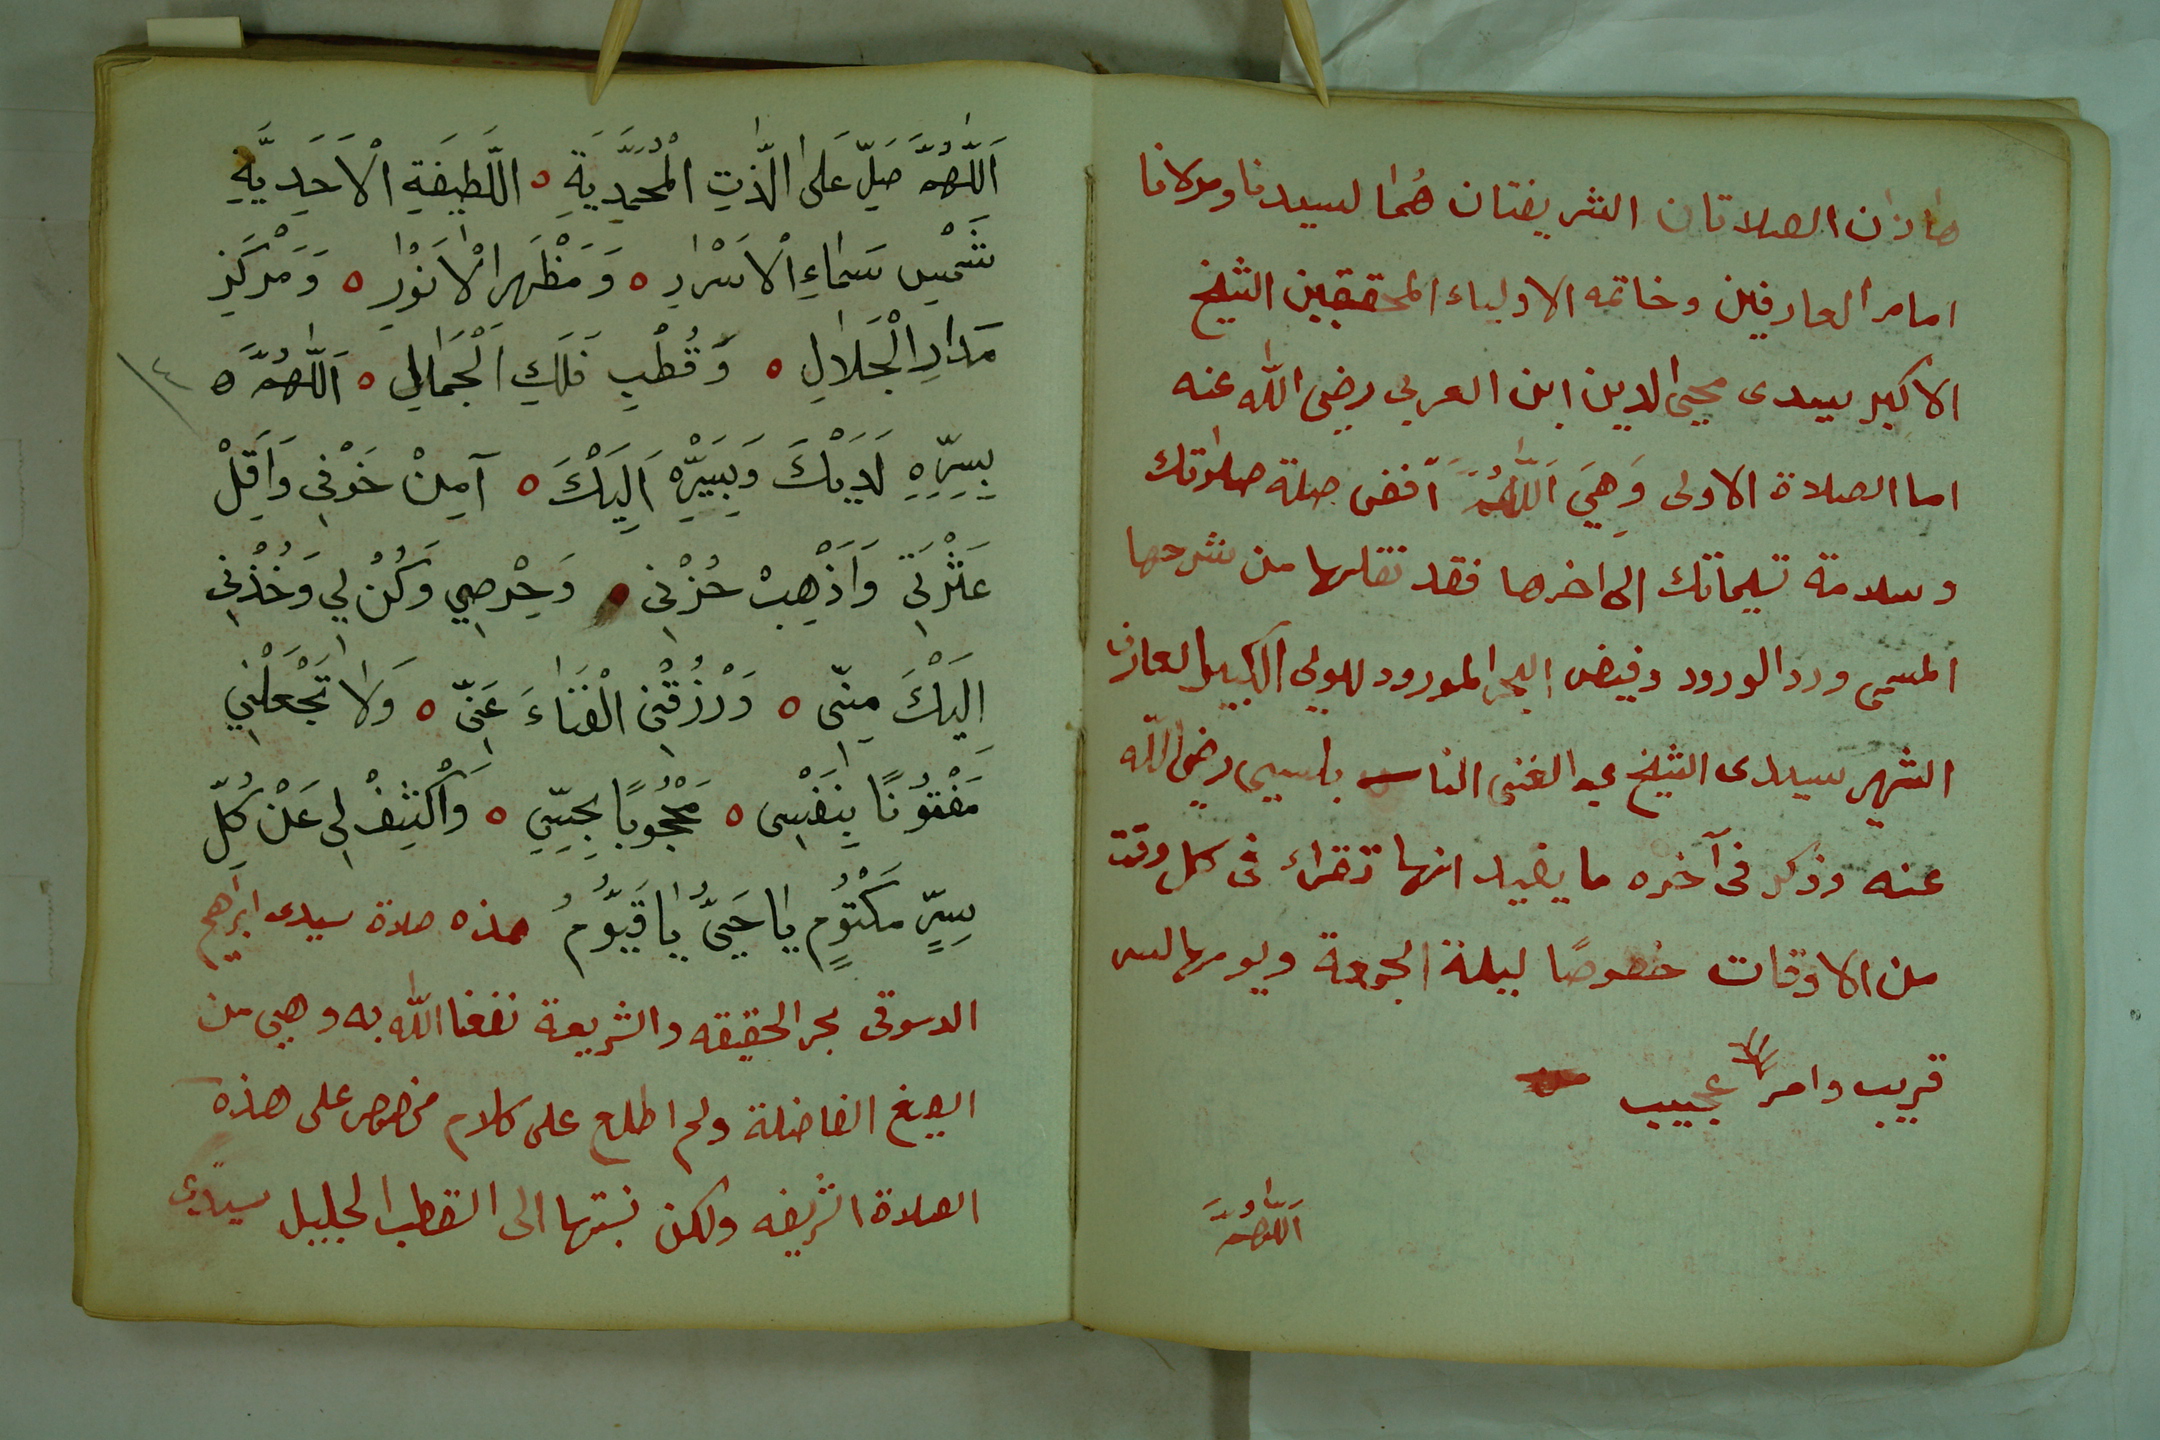 هاذان الصلاتان الشريفتان هُما لسيدنا ومولانا
امام العارفين وخاتمه الاولياء المحققين الشيخ
الاكبر سيدى محيي الدين ابن العربي رضى الله عنه
اما الصلاة الاولى وَهِيَ اَللّٰهُمَّ اَفض صلة صلوٰتك
وسلامة تسليماتك الى اخرها فقد نقلتها من شرحها
المسمى ورد الورود وفيض البحر المورود للولي الكبير العارف
الشهير سيدى الشيخ عبد الغنى النابلسي رضى الله
عنه وذكر فى آخره ما يفيد انها تقراء فى كل وقت
من الاوقات خصوصًا ليلة الجمعة ويومها لسر
قريب وامر عجيب
اَللّٰهُمَّ
اَللّٰهُمَّ صَلِّ عَلَى الذَّاتِ الْمُحَمَّدِيَّةِ ه اللَّطِيفَةِ الْاَحَدِيَّةِ
شَمْسِ سَمَاءِ الْاَسْرَارِ ه وَمَظْهَرِ الْاَنْوَارِ ه وَمَرْكَزِ
مَدَارِ الْجَلَالِ ه وَقُطْبِ فَلَكِ الْجَمَالِ ه اَللّٰهُمَّ ه
٤
بِسِرِّهِ لَدَيْكَ وَبِسَيْرِهِ اِلَيْكَ ه آمِنْ خَوْفِي وَاَقِلْ
عَثْرَتِي وَاَذْهِبْ حُزْنِي ه وَحِرْصِي وَكُنْ لِي وَخُذْنِي
اِلَيْكَ مِنِّى ه وَرْزُقْنِى الْفَنَاءَ عَنِّى ه وَلَا تَجْعَلْنِي
مَفْتُونًا بِنَفْسِى ه مَحْجُوبًا بِحِسِّي ه وَاكْشِفْ لِى عَنْ كُلِّ
سِرٍّ مَكْتُومٍ يَا حَيُّ يَا قَيُّومُ هذه صلاة سيدى ابراهيم
الدسوقى بحر الحقيقه والشريعة نفعنا الله به وهي من
الصيغ الفاضلة ولم اطلع على كلام مخصوص على هذه
الصلاة الشريفه ولكن نسبتها الى القطب الجليل سيدى